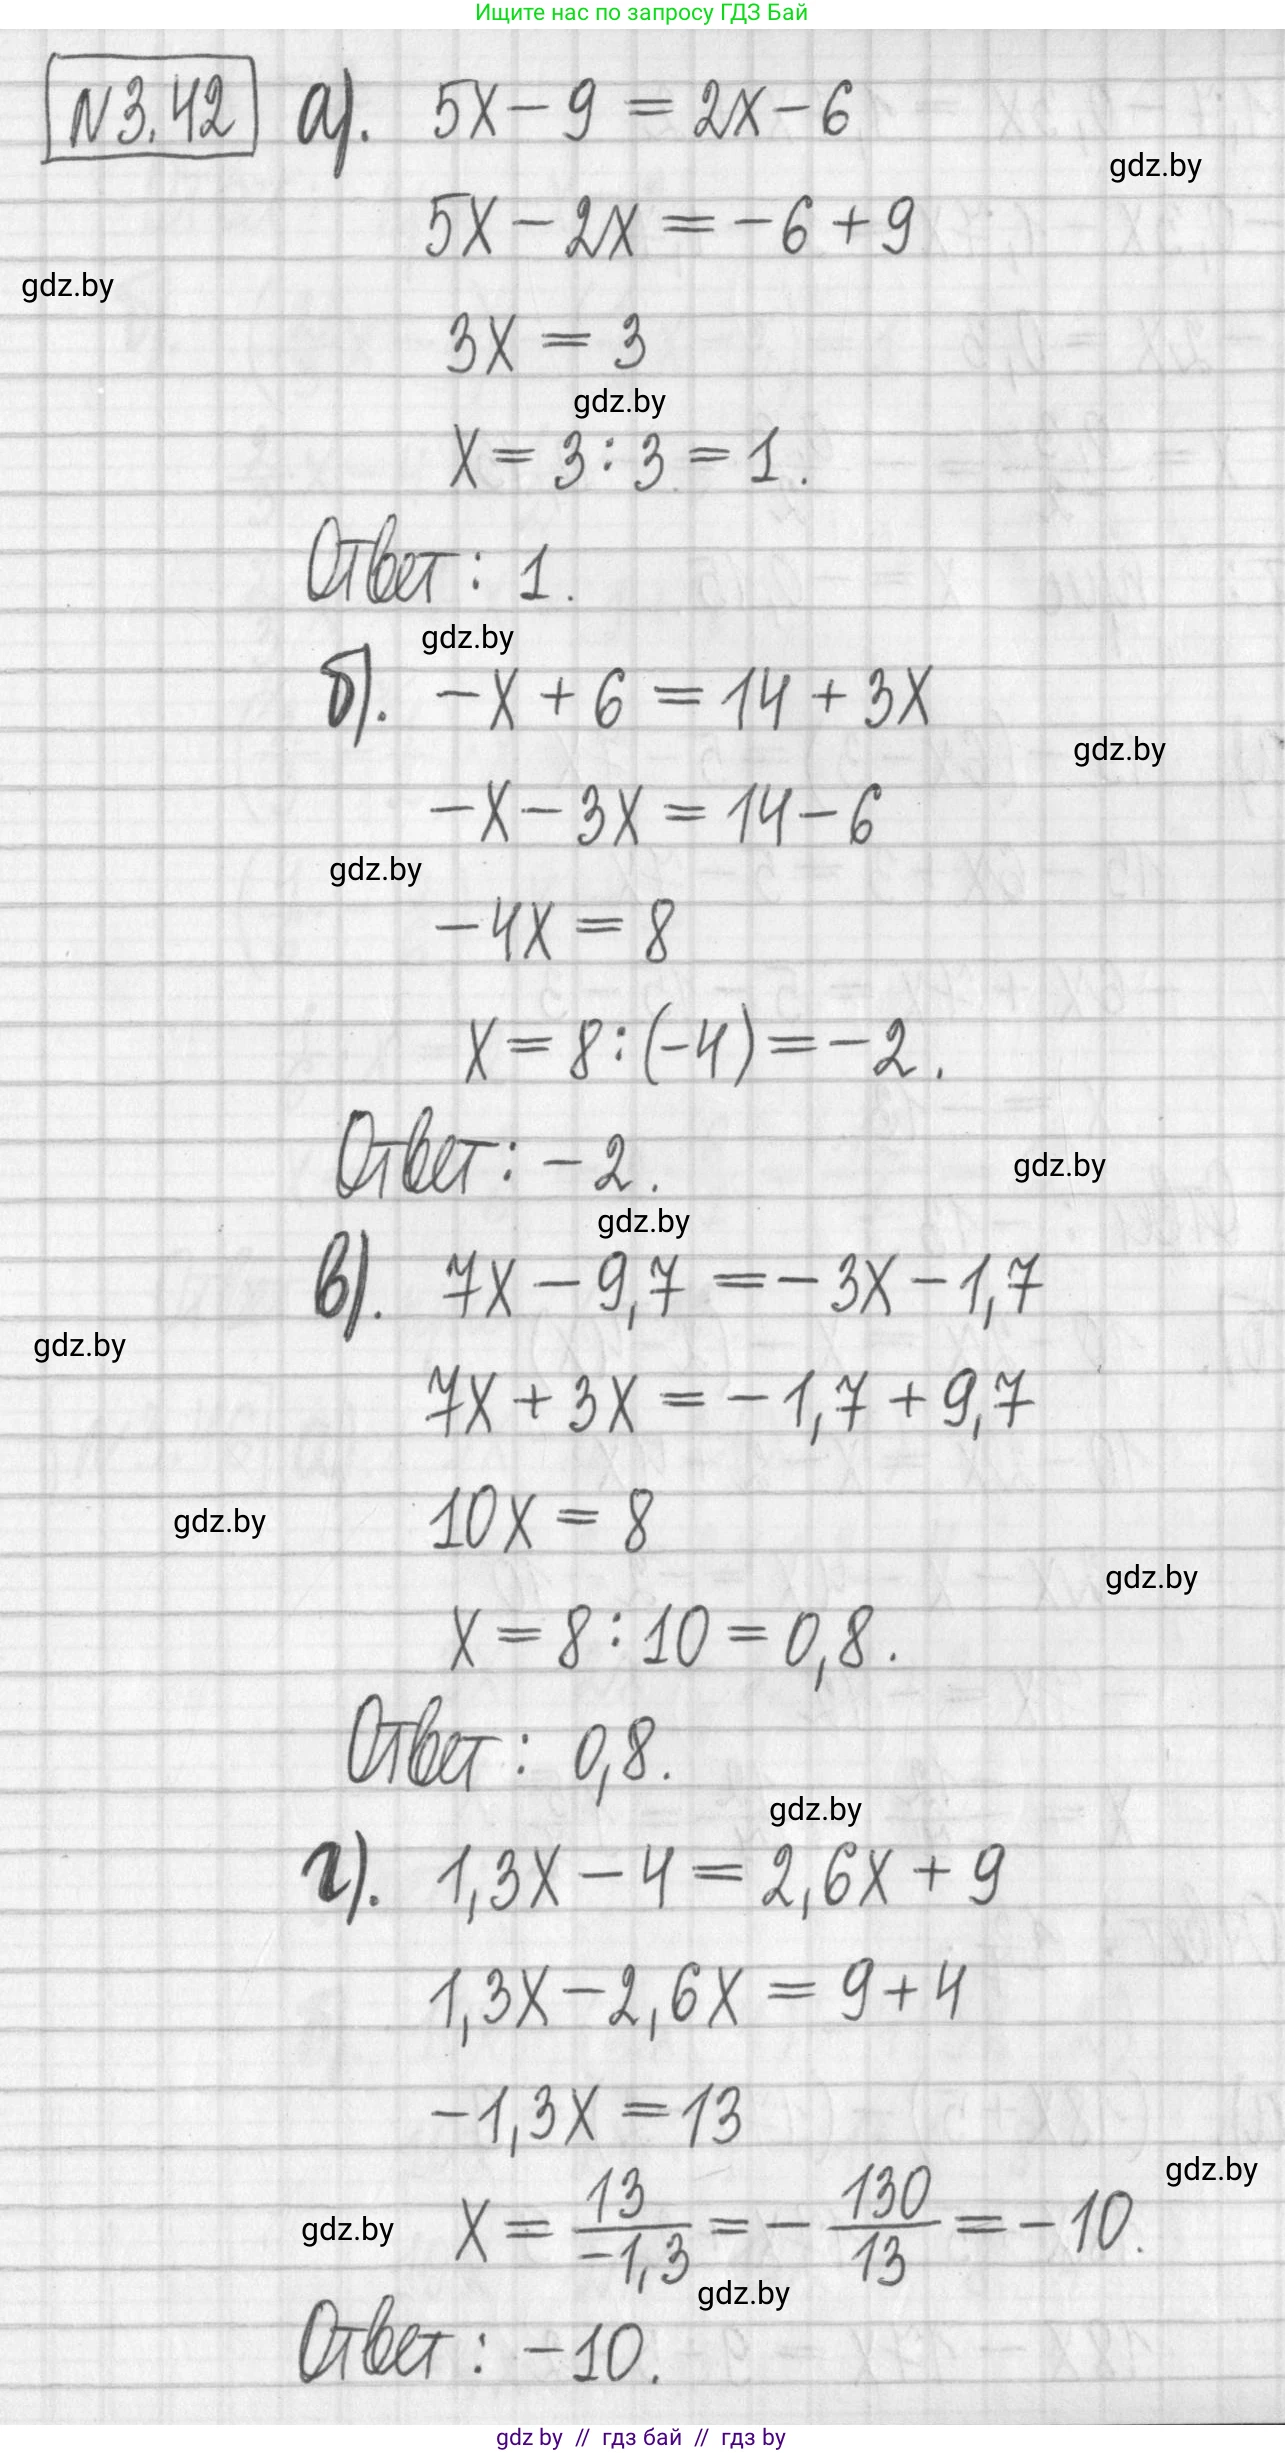 Ищите нас по запросу ГДЗ Бай
N3.42 а). 5x - 9 = 2x - 6
gdz.by
5x - 2x = -6 + 9
gdz.by
3x = 3
gdz.by
x = 3 : 3 = 1.
Ответ: 1.
gdz.by
б). -x + 6 = 14 + 3x
gdz.by
-x - 3x = 14 - 6
gdz.by
-4x = 8
x = 8 : (-4) = -2.
Ответ: -2.
gdz.by
gdz.by
в). 7x - 9,7 = -3x - 1,7
gdz.by
7x + 3x = -1,7 + 9,7
10x = 8
gdz.by
gdz.by
x = 8 : 10 = 0,8.
Ответ: 0,8.
gdz.by
г). 1,3x - 4 = 2,6x + 9
1,3x - 2,6x = 9 + 4
-1,3x = 13
gdz.by
gdz.by x = 13/-1,3 = - 130/13 = -10.
gdz.by
Ответ: -10.
gdz by // гдз бай // гдз by